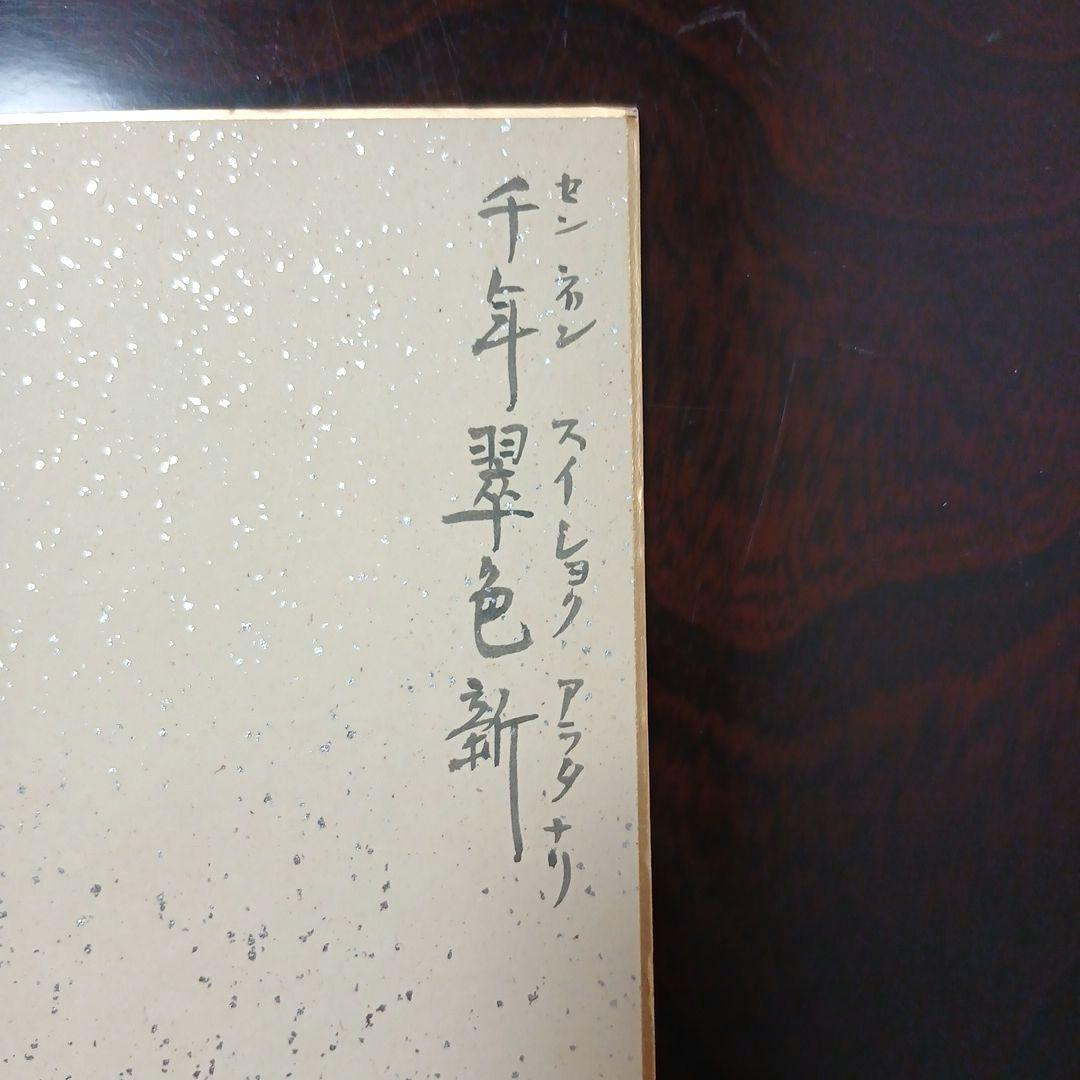 センネンスイショクアラタナリ
千年翠色新